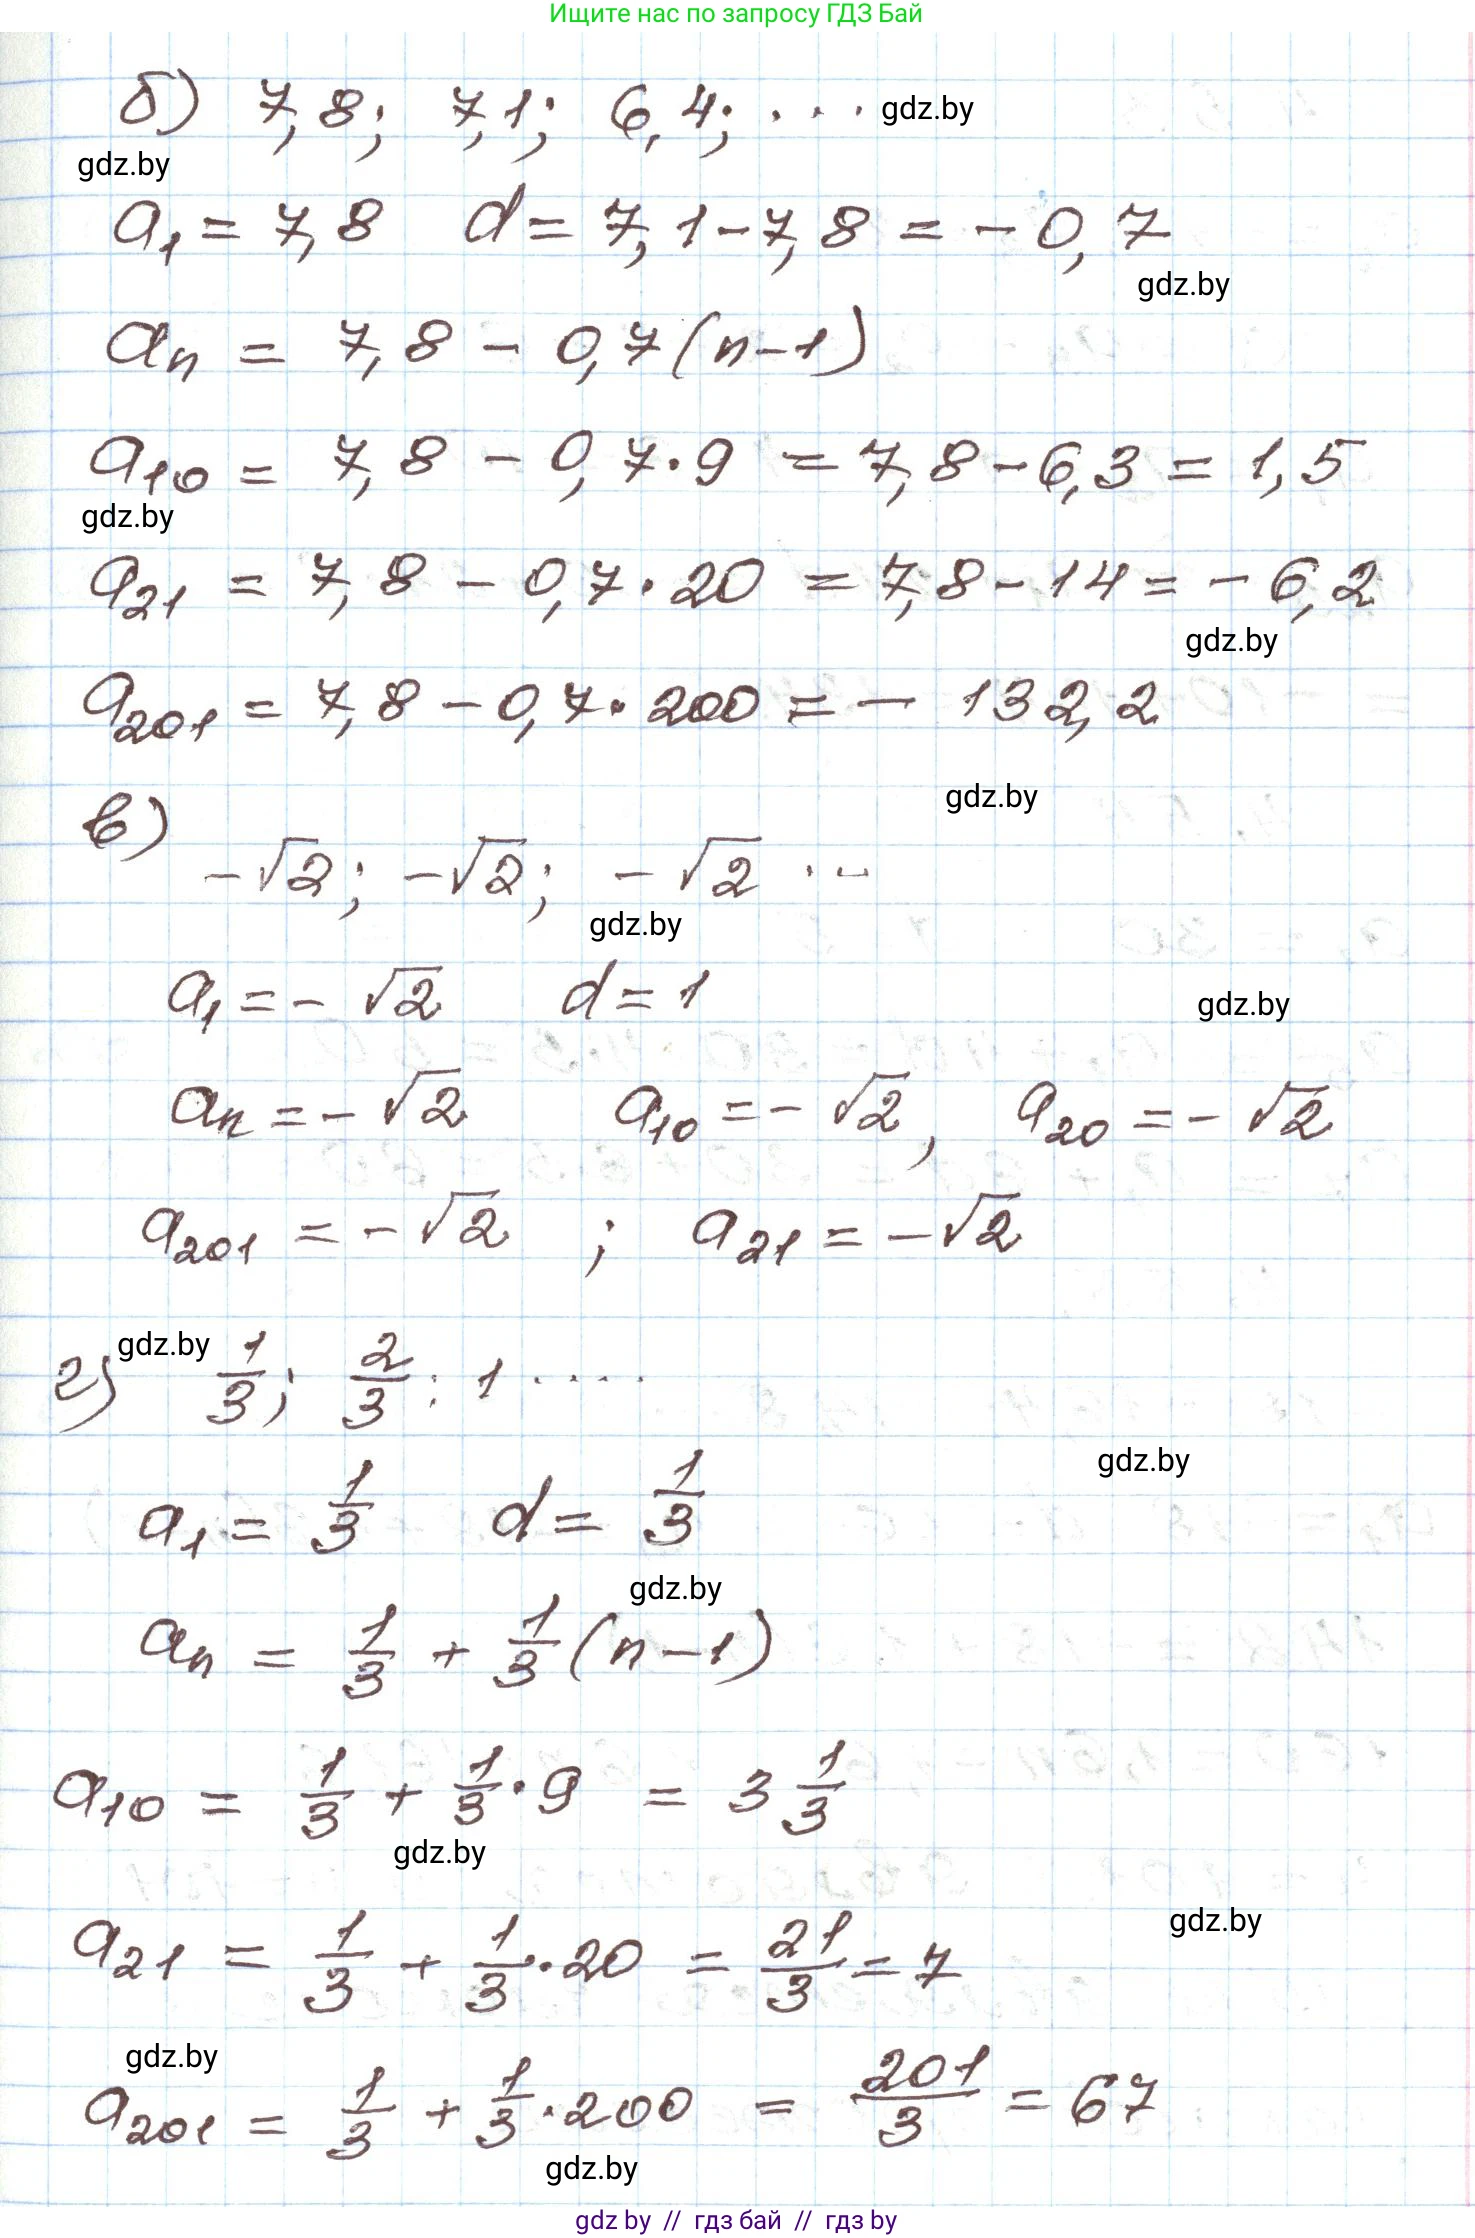 Ищите нас по запросу ГДЗ Бай
б) 7,8; 7,1; 6,4; ... gdz.by
gdz.by
a₁ = 7,8 d = 7,1 - 7,8 = - 0,7
gdz.by
aₙ = 7,8 - 0,7 (n-1)
a₁₀ = 7,8 - 0,7 · 9 = 7,8 - 6,3 = 1,5
gdz.by
a₂₁ = 7,8 - 0,7 · 20 = 7,8 - 14 = - 6,2
gdz.by
a₂₀₁ = 7,8 - 0,7 · 200 = - 132,2
gdz.by
в) -√2; -√2; -√2 ...
gdz.by
a₁ = - √2 d = 1
gdz.by
aₙ = - √2 a₁₀ = - √2, a₂₀ = - √2
a₂₀₁ = - √2 ; a₂₁ = - √2
gdz.by
г) 1/3; 2/3 : 1 ....
gdz.by
a₁ = 1/3 d = 1/3
gdz.by
aₙ = 1/3 + 1/3 (n-1)
a₁₀ = 1/3 + 1/3 · 9 = 3 1/3
gdz.by
gdz.by
a₂₁ = 1/3 + 1/3 · 20 = 21/3 = 7
gdz.by
a₂₀₁ = 1/3 + 1/3 · 200 = 201/3 = 67
gdz.by
gdz by // гдз бай // гдз by